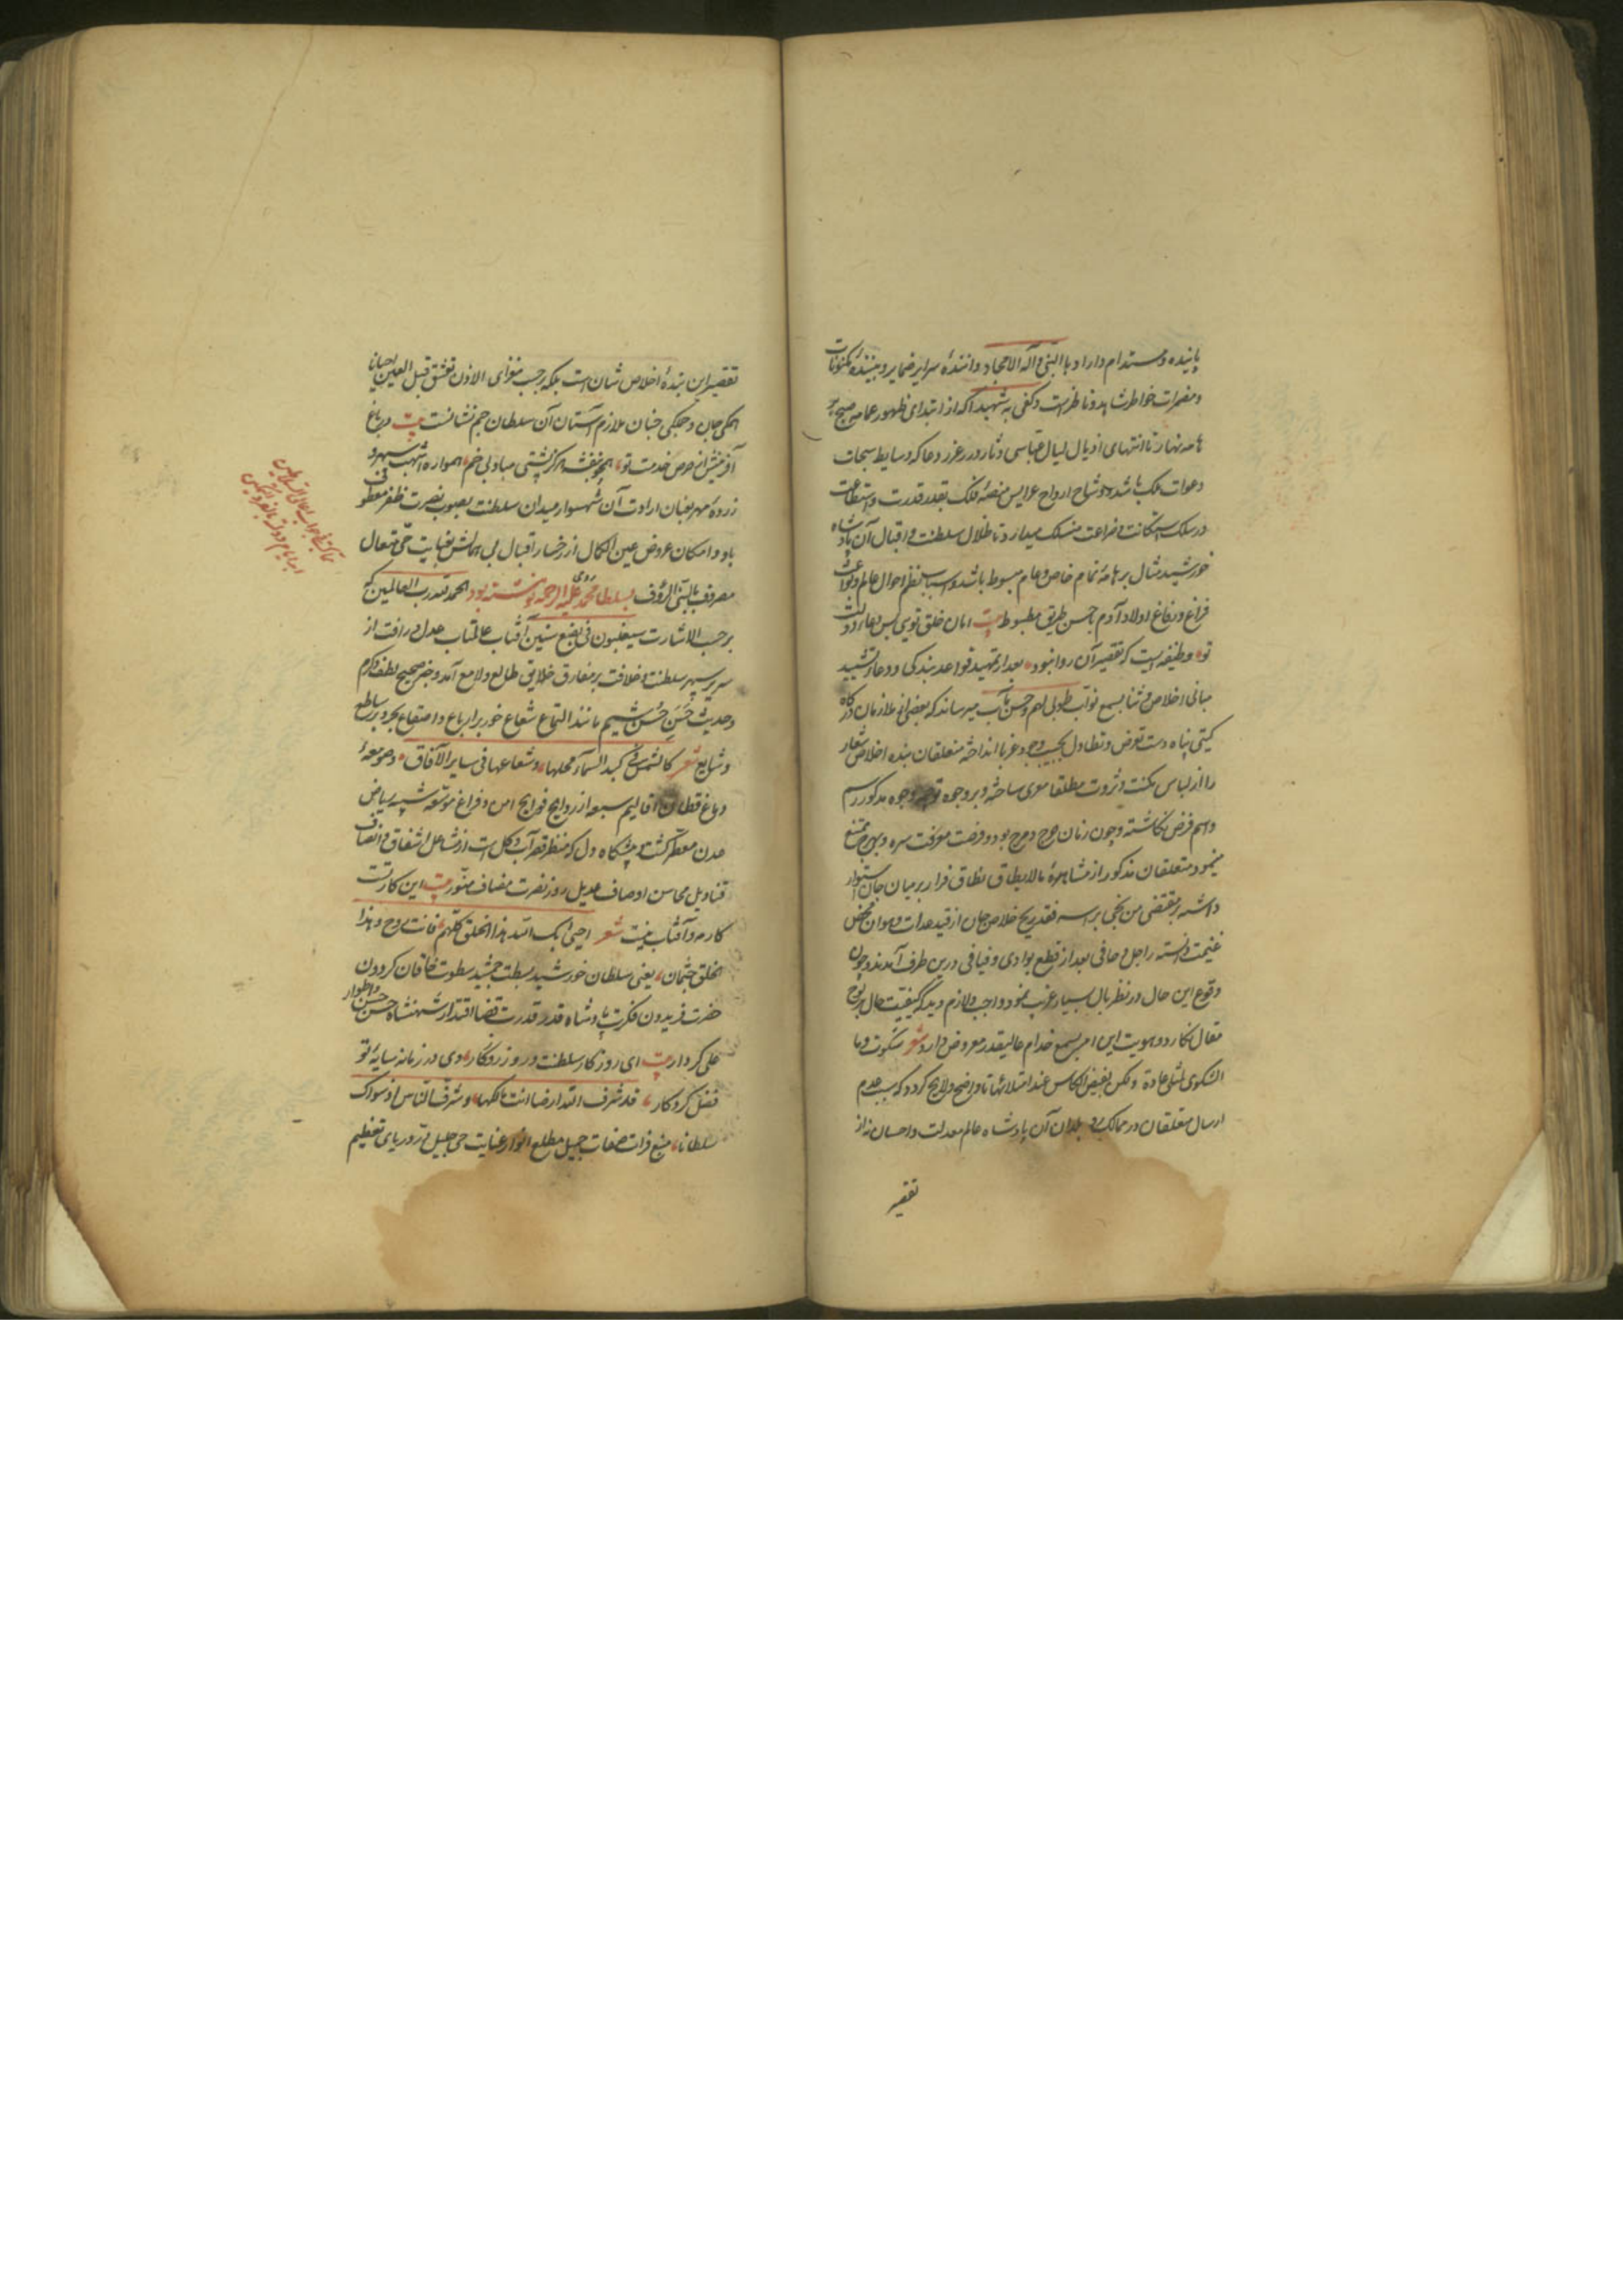 پاینده و مستدام داراد با النبی و آله الامجاد و داننده سرایر ضمایر و بیننده مکنونات
و مضمرات خواطر شاهد و ناظر است و کفی به شهیدا که از ابتدای ظهور عمامه صبح بر
هامه نهار تا انتهای اذیال لیال عباسی دثار درر غرر دعا که وسایط سبحات
دعوات ملک باشد و وشاح ارواح عرایس منصه فلک بقدر قدرت و استطاعت
در سلک استکانت و ضراعت منسلک میدارد تا ظلال سلطنت و اقبال آن پادشاه
خورشید مثال بر هامه تمام خاص و عام مبسوط باشد و اسباب نظم احوال عالم و بواعث
فراغ و رفاغ اولاد آدم باحسن طریق مضبوط بیت امان خلق تویی پس دعای دولت
تو وظیفه ایست که تقصیر آن روا نبود بعد از تمهید قواعد بندکی و دعا و تشیید
مبانی اخلاص و ثنا بسمع نواب طوبی لهم و حسن مآب میرساند که بعضی از ملازمان درکاه
کیتی پناه دست تعرض و تطاول بجیب وجود غربا انداخته متعلقان بنده اخلاص شعار
را از لباس مکنت و ثروت مطلقا معری ساخته و بر وجوه وجوه مذکور رسم
و اسم فرض نکاشته و چون زنان هرج و مرج بود و فرصت معرکت سره و بهرج ممتنع
مینمود متعلقان مذکور از مشاهده مالایطاق نطاق فرار بر میان جان استوار
داشته بر مقتضی من نجی براسه فقد ربح خلاص جان از قید عدات و هوان محض
غنیمت دانسته راجل و حافی بعد از قطع بوادی و فیافی درین طرف آمدند و چون
وقوع این حال در نظر بال بسیار غریب نمود واجب و لازم دید که کیفیت حال بر لوح
مقال نکارد و هویت این امر بسمع خدام عالیقدر معروض دارد شعر شکوت و ما
الشکوی لمثلی عادة ولکن تفیض الکاس عند امتلائها تا واضح و لایح کردد که سبب عدم
ارسال متعلقان در ممالک و بلدان آن پادشاه عالم معدلت و احسان نه از
تقصیر
تقصیر این بنده اخلاص شان است بلکه بر حسب فحوای الاذن تعشق قبل العین احیانا
همکی جان و جملکی جنان ملازم آستان آن سلطان جم نشانست بیت در باغ
آفرینش از حرص خدمت تو همچو بنفشه هرکز پشتی مباد بی خم همواره اشهب سپهر و
زرده مهر بعنان ارادت آن شهسوار میدان سلطنت بصوب نصرت و ظفر معطوف
باد و امکان عروض عین الکمال از رخسار اقبال بی همالش بعنایت حی متعال
مصروف بالنبی الرؤف بسلطان محمد رومی علیه الرحمه نوشته بود الحمد لله رب العالمین که
بر حسب الاشارت سیغلبون فی بضع سنین آفتاب عالمتاب عدل و رافت از
سریر سپهر سلطنت و خلافت بر مفارق خلایق طالع و لامع آمد و خبر صحیح لطف و کرم
و حدیث حسن حسن شیم مانند التماع شعاع خور بر ارباع و اصقاع بحر و بر ساطع
و شایع شعر کالشمس فی کبد السماء محلها و شعاعها فی سایر الآفاق و صومعه
دماغ قطان اقالیم سبعه از روایح فوایح امن و فراغ موسعه شبیه ریاض
عدن معطر کشت و مشکاه دل که منظر قصر آب و کل است از مشاعل اشفاق و انصاف
قنادیل محاسن اوصاف عدیل روز نصرت مضاف منور بیت این کار تست
کار مه و آفتاب نیست شعر احیی بک الله هذا الخلق کلهم فانت روح و هذا
الخلق جثمان یعنی سلطان خورشید بسطت جمشید سطوت خاقان کردون
حضرت فریدون فکرت پادشاه قدر قدرت قضا اقتدار شهنشاه حسن حسن اطوار
علی کردار بیت ای روزکار سلطنت روزکار وی در زمانه سایه تو
فضل کردکار قد شرف الله ارضا انت مالکها و شرف الناس اذ سواک
سلطانا منبع فرات صفات جمیل مطلع انوار عنایت حی جلیل در دریای تعظیم